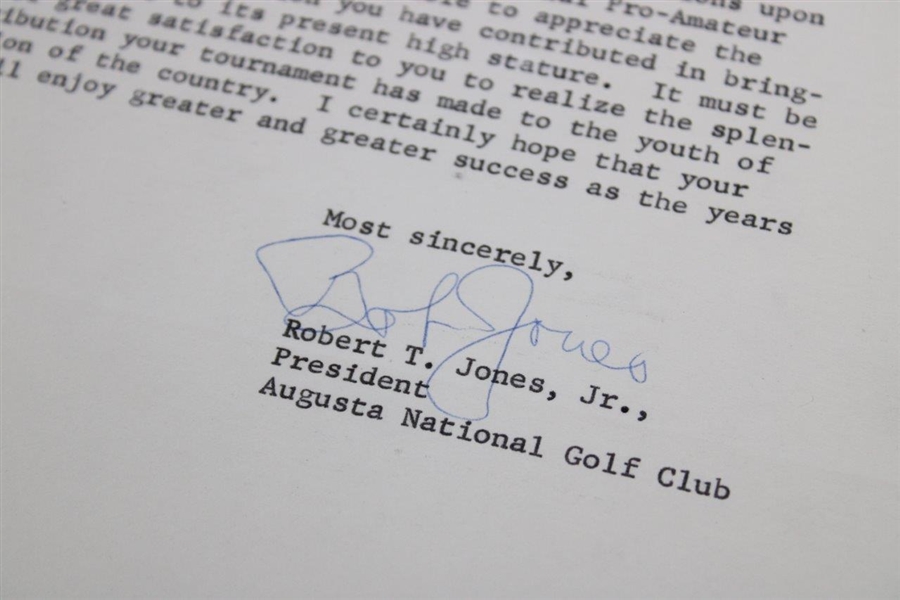 upon
Pro-Amateur
to appreciate the
you have contributed in bring-
to its present high stature. It must be
great satisfaction to you to realize the splen-
your tournament has made to the youth of
of the country. I certainly hope that your
enjoy greater and greater success as the years
Most sincerely,
Bob Jones
Robert T. Jones, Jr.,
President
Augusta National Golf Club